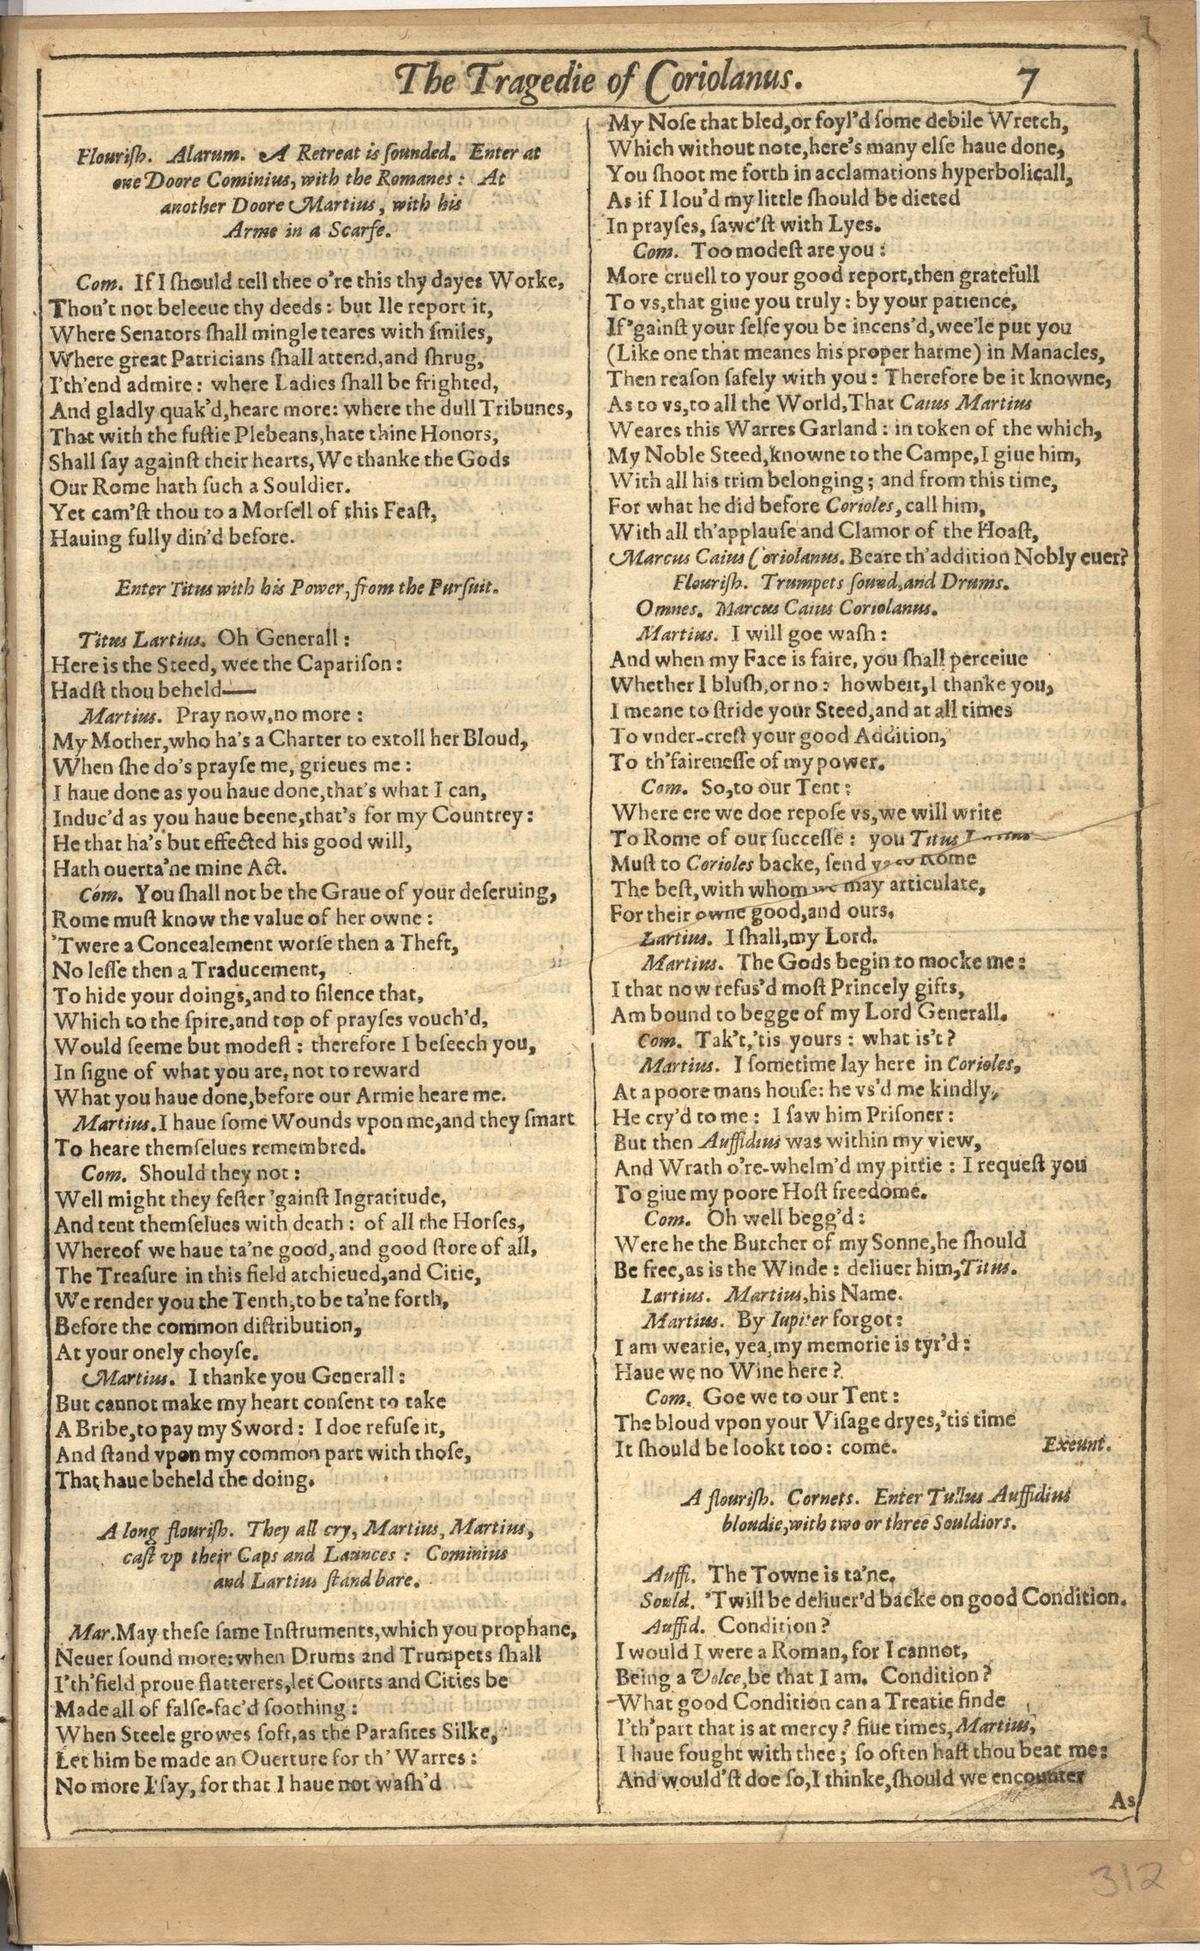 The Tragedie of Coriolanus. 7
Flouriſh. Alarum. A Retreat is ſounded. Enter at
one Doore Cominius, with the Romanes: At
another Doore Martius, with his
Arme in a Scarfe.
Com. If I ſhould tell thee o're this thy dayes Worke,
Thou't not beleeue thy deeds: but Ile report it,
Where Senators ſhall mingle teares with ſmiles,
Where great Patricians ſhall attend, and ſhrug,
I'th'end admire: where Ladies ſhall be frighted,
And gladly quak'd, heare more: where the dull Tribunes,
That with the fuſtie Plebeans, hate thine Honors,
Shall ſay againſt their hearts, We thanke the Gods
Our Rome hath ſuch a Souldier.
Yet cam'ſt thou to a Morſell of this Feaſt,
Hauing fully din'd before.
Enter Titus with his Power, from the Purſuit.
Titus Lartius. Oh Generall:
Here is the Steed, wee the Caparison:
Hadſt thou beheld——
Martius. Pray now, no more:
My Mother, who ha's a Charter to extoll her Bloud,
When ſhe do's prayſe me, grieues me:
I haue done as you haue done, that's what I can,
Induc'd as you haue beene, that's for my Countrey:
He that ha's but effected his good will,
Hath ouerta'ne mine Act.
Com. You ſhall not be the Graue of your deſeruing,
Rome muſt know the value of her owne:
'Twere a Concealement worſe then a Theft,
No leſſe then a Traducement,
To hide your doings, and to ſilence that,
Which to the ſpire, and top of prayſes vouch'd,
Would ſeeme but modeſt: therefore I beſeech you,
In ſigne of what you are, not to reward
What you haue done, before our Armie heare me.
Martius. I haue ſome Wounds vpon me, and they ſmart
To heare themſelues remembred.
Com. Should they not:
Well might they feſter 'gainſt Ingratitude,
And tent themſelues with death: of all the Horſes,
Whereof we haue ta'ne good, and good ſtore of all,
The Treaſure in this field atchieued, and Citie,
We render you the Tenth, to be ta'ne forth,
Before the common diſtribution,
At your onely choyſe.
Martius. I thanke you Generall:
But cannot make my heart conſent to take
A Bribe, to pay my Sword: I doe refuſe it,
And ſtand vpon my common part with thoſe,
That haue beheld the doing.
A long flouriſh. They all cry, Martius, Martius,
caſt vp their Caps and Launces: Cominius
and Lartius ſtand bare.
Mar. May theſe ſame Inſtruments, which you prophane,
Neuer ſound more: when Drums and Trumpets ſhall
I'th'field proue flatterers, let Courts and Cities be
Made all of falſe-fac'd ſoothing:
When Steele growes ſoft, as the Paraſites Silke,
Let him be made an Ouerture for th' Warres:
No more I ſay, for that I haue not waſh'd
My Noſe that bled, or foyl'd ſome debile Wretch,
Which without note, here's many elſe haue done,
You ſhoot me forth in acclamations hyperbolicall,
As if I lou'd my little ſhould be dieted
In prayſes, ſawc'ſt with Lyes.
Com. Too modeſt are you:
More cruell to your good report, then gratefull
To vs, that giue you truly: by your patience,
If 'gainſt your ſelfe you be incens'd, wee'le put you
(Like one that meanes his proper harme) in Manacles,
Then reaſon ſafely with you: Therefore be it knowne,
As to vs, to all the World, That Caius Martius
Weares this Warres Garland: in token of the which,
My Noble Steed, knowne to the Campe, I giue him,
With all his trim belonging; and from this time,
For what he did before Corioles, call him,
With all th'applauſe and Clamor of the Hoaſt,
Marcus Caius Coriolanus. Beare th'addition Nobly euer?
Flouriſh. Trumpets ſound, and Drums.
Omnes. Marcus Caius Coriolanus.
Martius. I will goe waſh:
And when my Face is faire, you ſhall perceiue
Whether I bluſh, or no: howbeit, I thanke you,
I meane to ſtride your Steed, and at all times
To vnder-creſt your good Addition,
To th'faireneſſe of my power.
Com. So, to our Tent:
Where ere we doe repoſe vs, we will write
To Rome of our ſucceſſe: you Titus
Muſt to Corioles backe, ſend to Rome
The beſt, with whom we may articulate,
For their owne good, and ours.
Lartius. I ſhall, my Lord.
Martius. The Gods begin to mocke me:
I that now refus'd moſt Princely gifts,
Am bound to begge of my Lord Generall.
Com. Tak't, 'tis yours: what is't?
Martius. I ſometime lay here in Corioles,
At a poore mans houſe: he vs'd me kindly,
He cry'd to me: I ſaw him Priſoner:
But then Auffidius was within my view,
And Wrath o're-whelm'd my pittie: I requeſt you
To giue my poore Hoſt freedome.
Com. Oh well begg'd:
Were he the Butcher of my Sonne, he ſhould
Be free, as is the Winde: deliuer him, Titus.
Lartius. Martius, his Name.
Martius. By Iupiter forgot:
I am wearie, yea, my memorie is tyr'd:
Haue we no Wine here?
Com. Goe we to our Tent:
The bloud vpon your Viſage dryes, 'tis time
It ſhould be lookt too: come. Exeunt.
A flouriſh. Cornets. Enter Tullus Auffidius
bloudie, with two or three Souldiors.
Auffi. The Towne is ta'ne.
Sould. 'Twill be deliuer'd backe on good Condition.
Auffid. Condition?
I would I were a Roman, for I cannot,
Being a Volce, be that I am. Condition?
What good Condition can a Treatie finde
I'th'part that is at mercy? fiue times, Martius,
I haue fought with thee; ſo often haſt thou beat me:
And would'ſt doe ſo, I thinke, ſhould we encounter
As
312